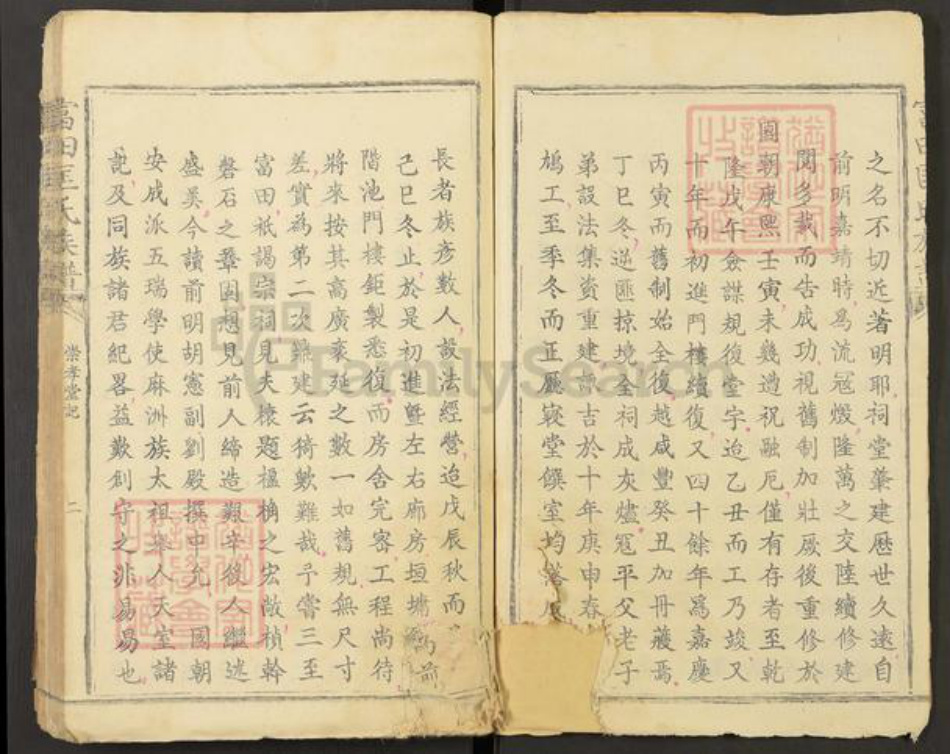 之名不切近著明耶祠堂肇建歷世久遠自
前明嘉靖時為流冠燬隆萬之交陸續修建
閱多載而告成功視舊制加壯厥後重修於
國朝康熙壬寅未幾遇祝融厄僅有存者至乾
隆戊午僉謀規復堂宇迨乙丑而工乃竣又
十年而初進門樓續復又四十餘年爲嘉慶
丙寅而舊制始全復越咸豐癸丑加冊葳焉
丁巳冬逆匪掠境全祠成灰燼冦平父老子
弟設法集資重建諏吉於十年庚申春
鳩工至季冬而正廳寢堂饌室均落
長者族彥數人設法經營迨戊辰秋而
己巳冬止於是初進暨左右廊房垣墉
階池門樓鉅製悉復而房舍完密工程尚待
將來按其高廣袤延之數一如舊規無尺寸
差實為第二次鼎建云猗歟難哉予嘗三至
富田祇謁宗祠見夫榱題楹桷之宏敞楨幹
磐石之鞏固想見前人締造艱辛後人繼述
盛美今讀前明胡憲副劉殿撰中允國朝
安成派五瑞學使麻洲族太祖舉人天室諸
記及同族諸君紀畧益歎創守之非易易也
富田匡氏族譜
崇孝堂記
二
FamilySearch